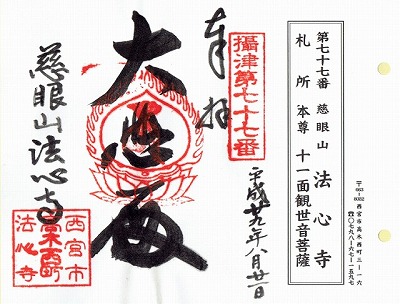 〒663-8032
西宮市高木西町三-一六
☎〇七九八-六七-一五九七
第七十七番 慈眼山 法心寺
札所 本尊 十一面観世音菩薩
攝津第七十七番
奉拝
平成廿九年八月廿一日
大悲殿
慈眼山法心寺
西宮市
高木西町
法心寺